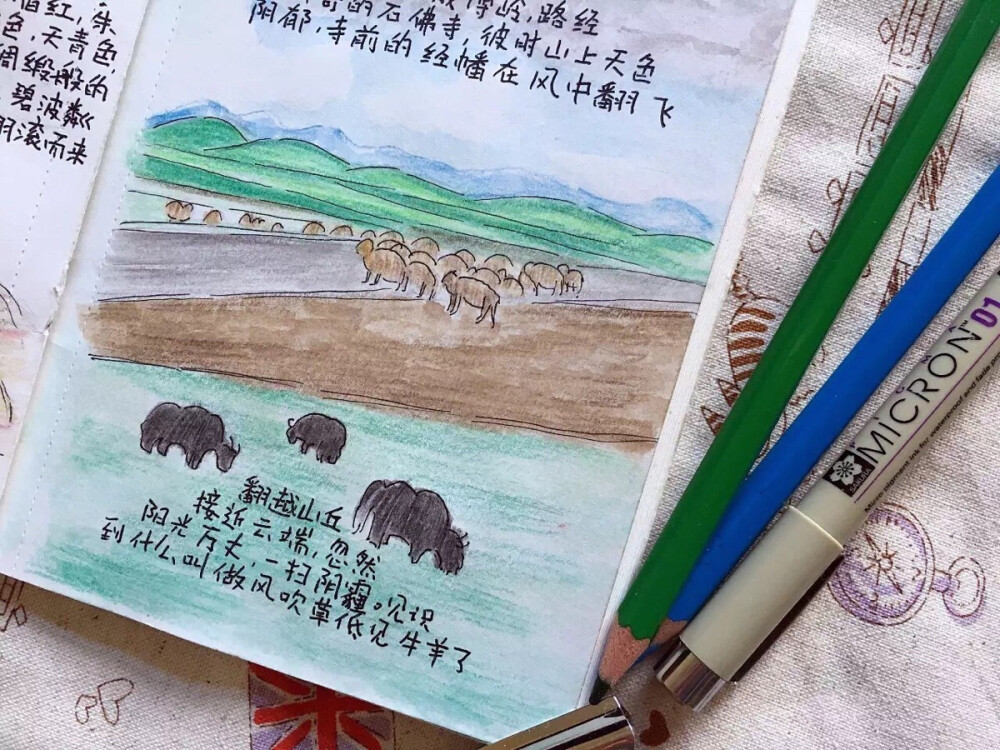 红,朱
色,天青色,
缎般的
碧波粼
滚而来
岭,路经
的石佛寺,彼时山上天色
阴郁,寺前的经幡在风中翻飞
翻越山丘
接近云端,忽然
阳光万丈一扫阴霾。见识
到什么叫做风吹草低见牛羊了
MICRON™ 01
Micro pigment ink for waterproof and fade proof